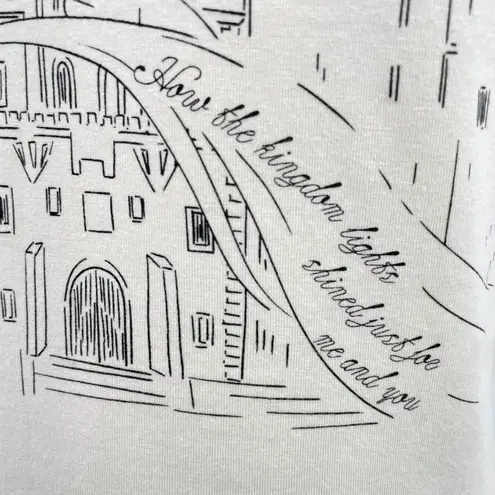 How the kingdom lights
shined just for
me and you